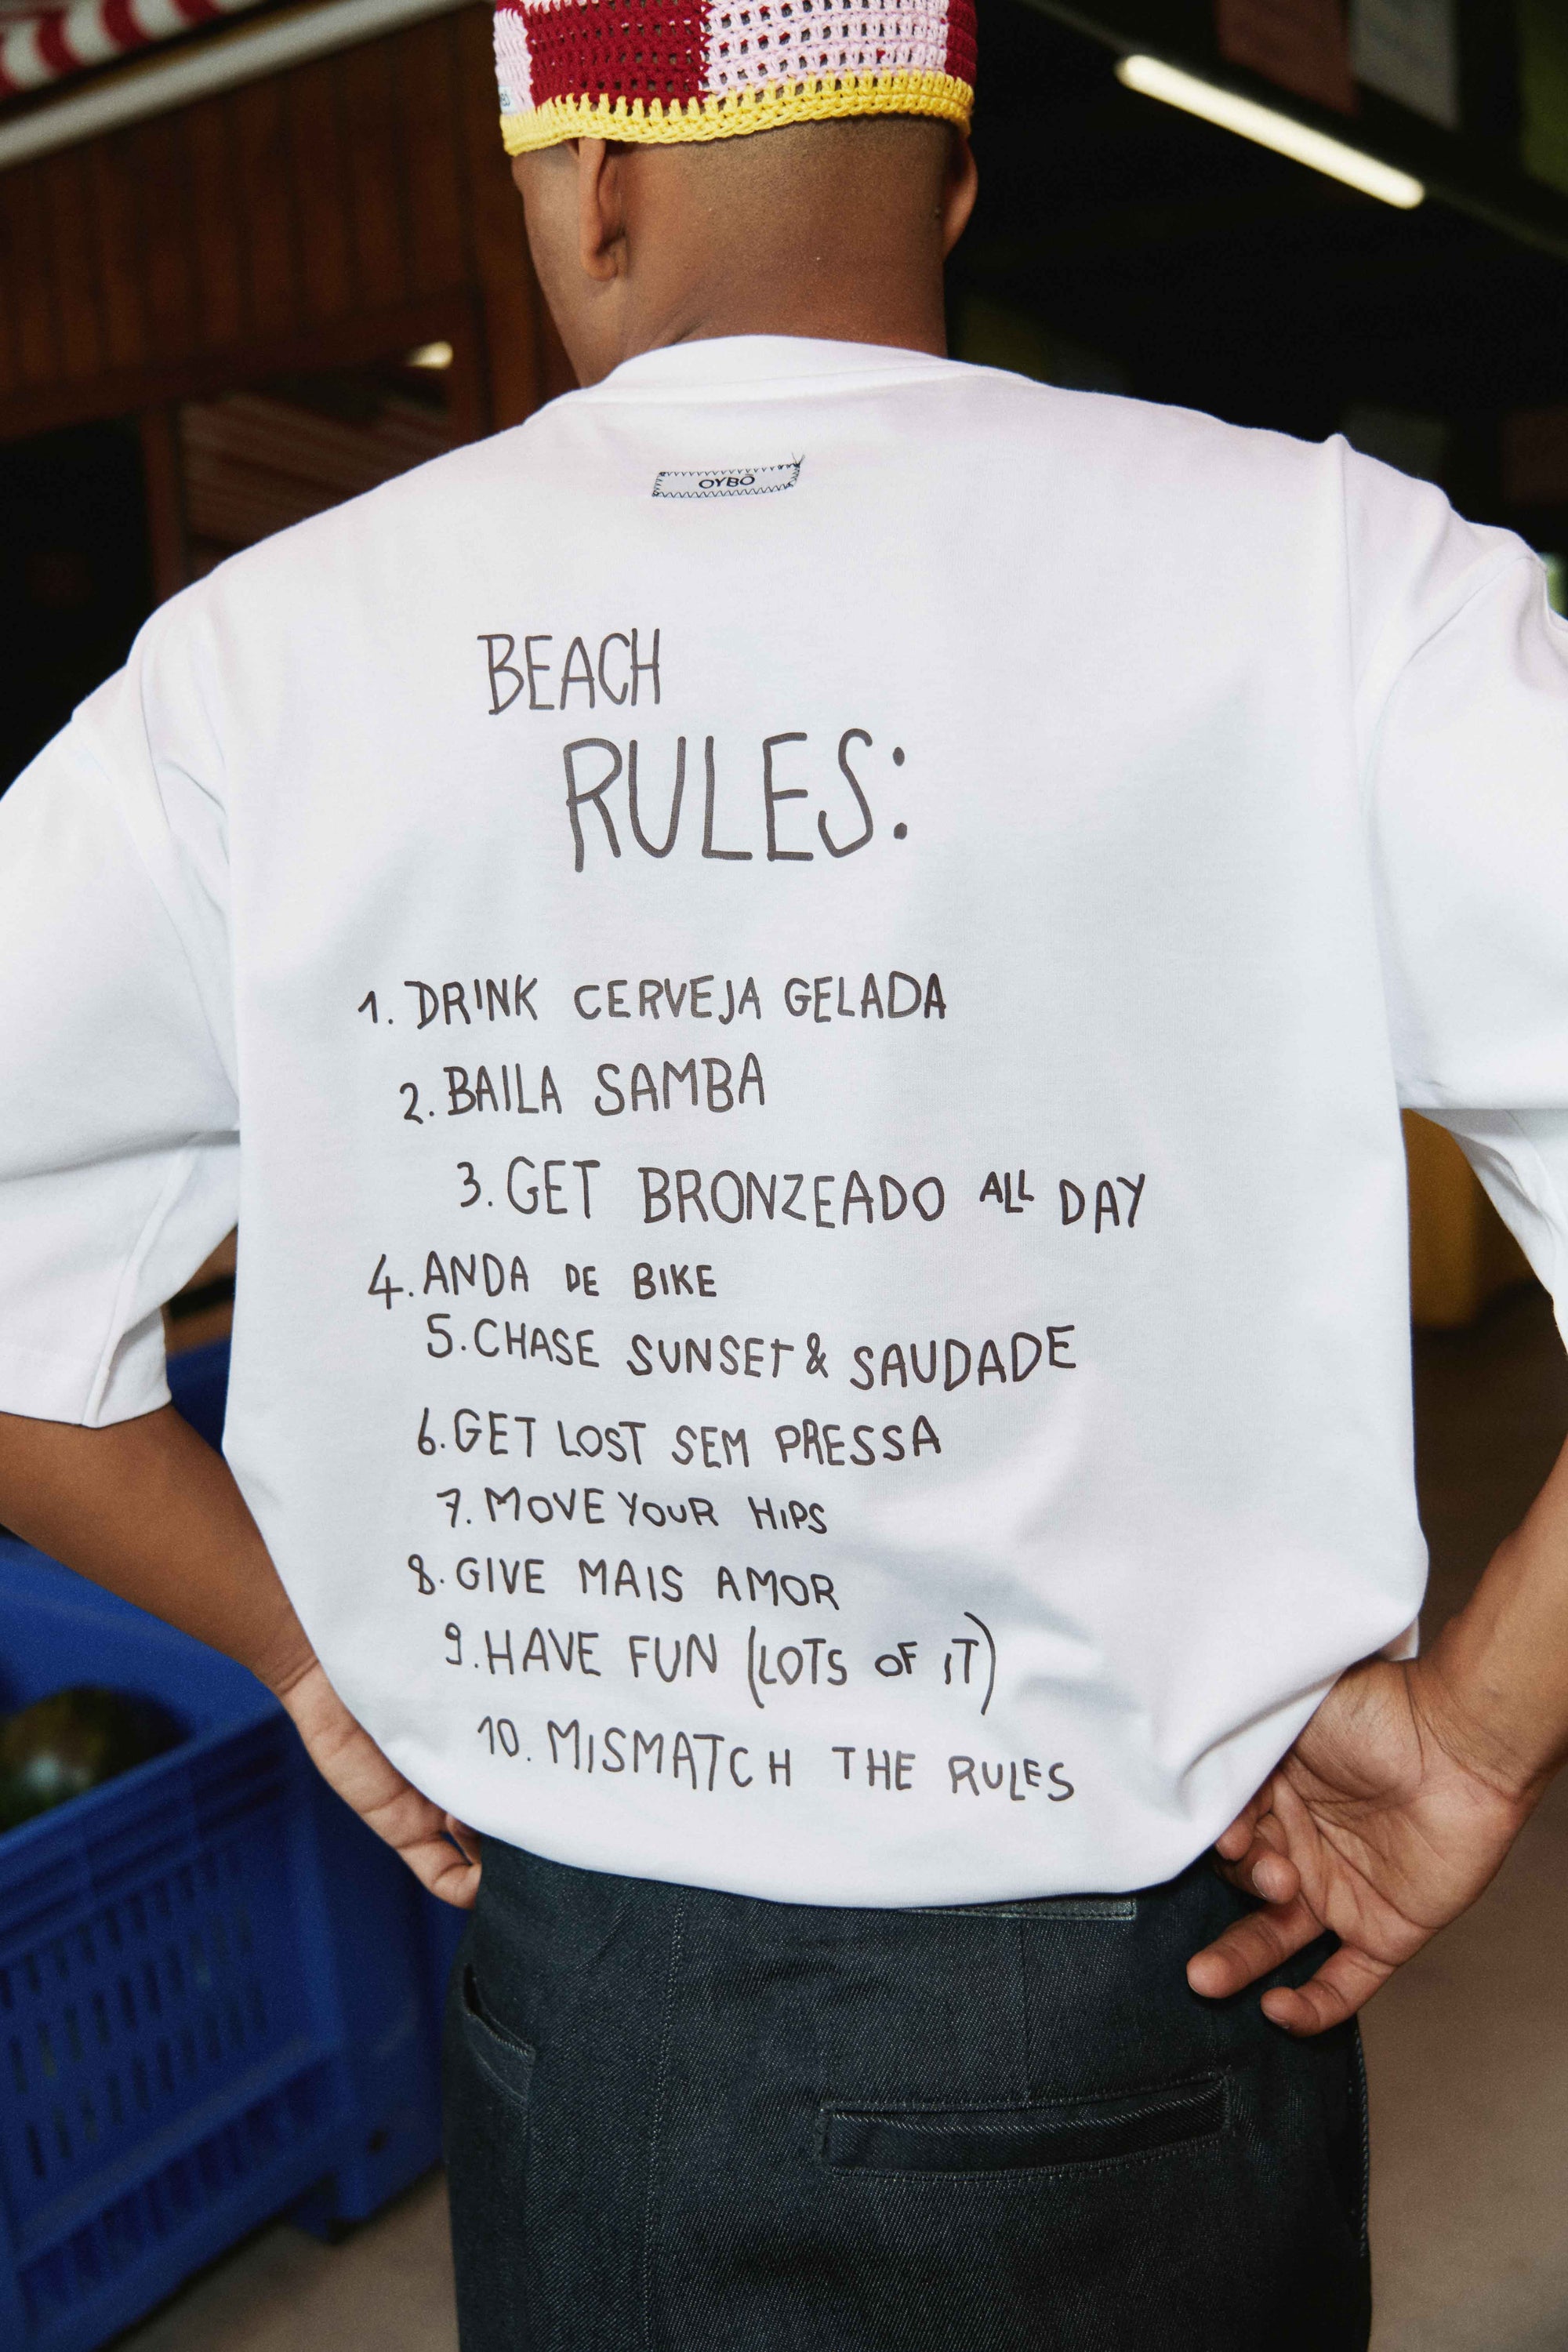 OYBŌ
BEACH
RULES:
1. DRINK CERVEJA GELADA
2. BAILA SAMBA
3. GET BRONZEADO ALL DAY
4. ANDA DE BIKE
5. CHASE SUNSET & SAUDADE
6. GET LOST SEM PRESSA
7. MOVE YOUR HIPS
8. GIVE MAIS AMOR
9. HAVE FUN (LOTS OF IT)
10. MISMATCH THE RULES